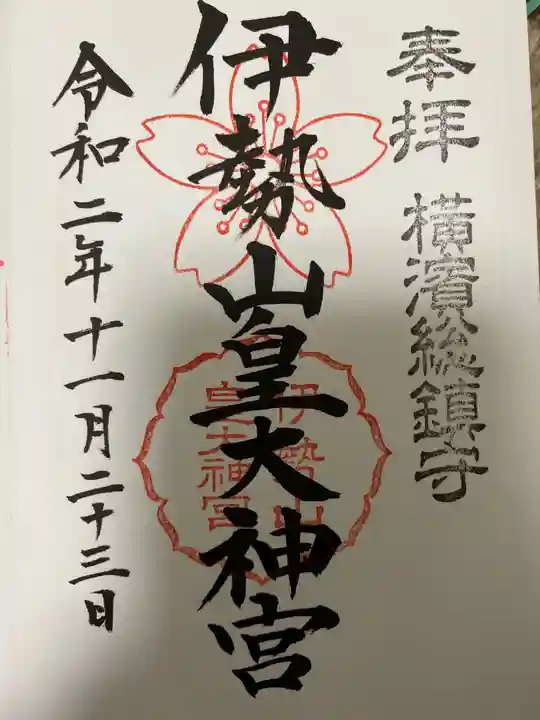 奉拝 横濱総鎮守
伊勢山皇大神宮
伊勢山
皇大神宮
令和二年十一月二十三日